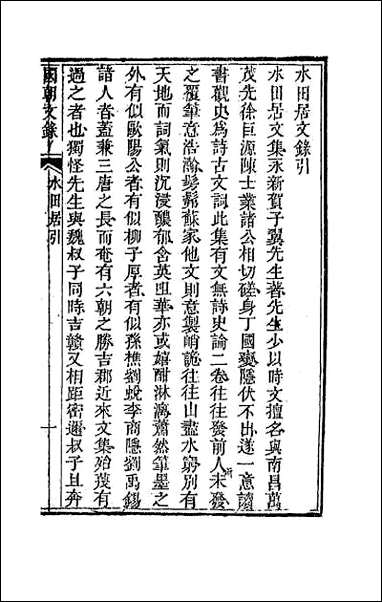 水田居文錄引
水田居文集永新賀子翼先生著先生少以時文擅名與南昌萬
茂先徐巨源陳士業諸公相切磋身丁國變隱伏不出遂一意讀
書觀史為詩古文詞此集有文無詩史論二卷往往發前人所未發
之覆筆意浩瀚髣髴蘇家他文則意製峭詭往往山盡水窮別有
天地而詞氣則沉浸醲郁含英咀華亦或嬉酣淋漓蕭然筆墨之
外有似歐陽公者有似柳子厚者有似孫樵劉蛻李商隱劉禹錫
諸人者蓋兼三唐之長而奄有六朝之勝吉郡近來文集殆莫有
過之者也獨怪先生與魏叔子同時吉贛又相距密邇叔子且奔
國朝文錄 水田居引 一